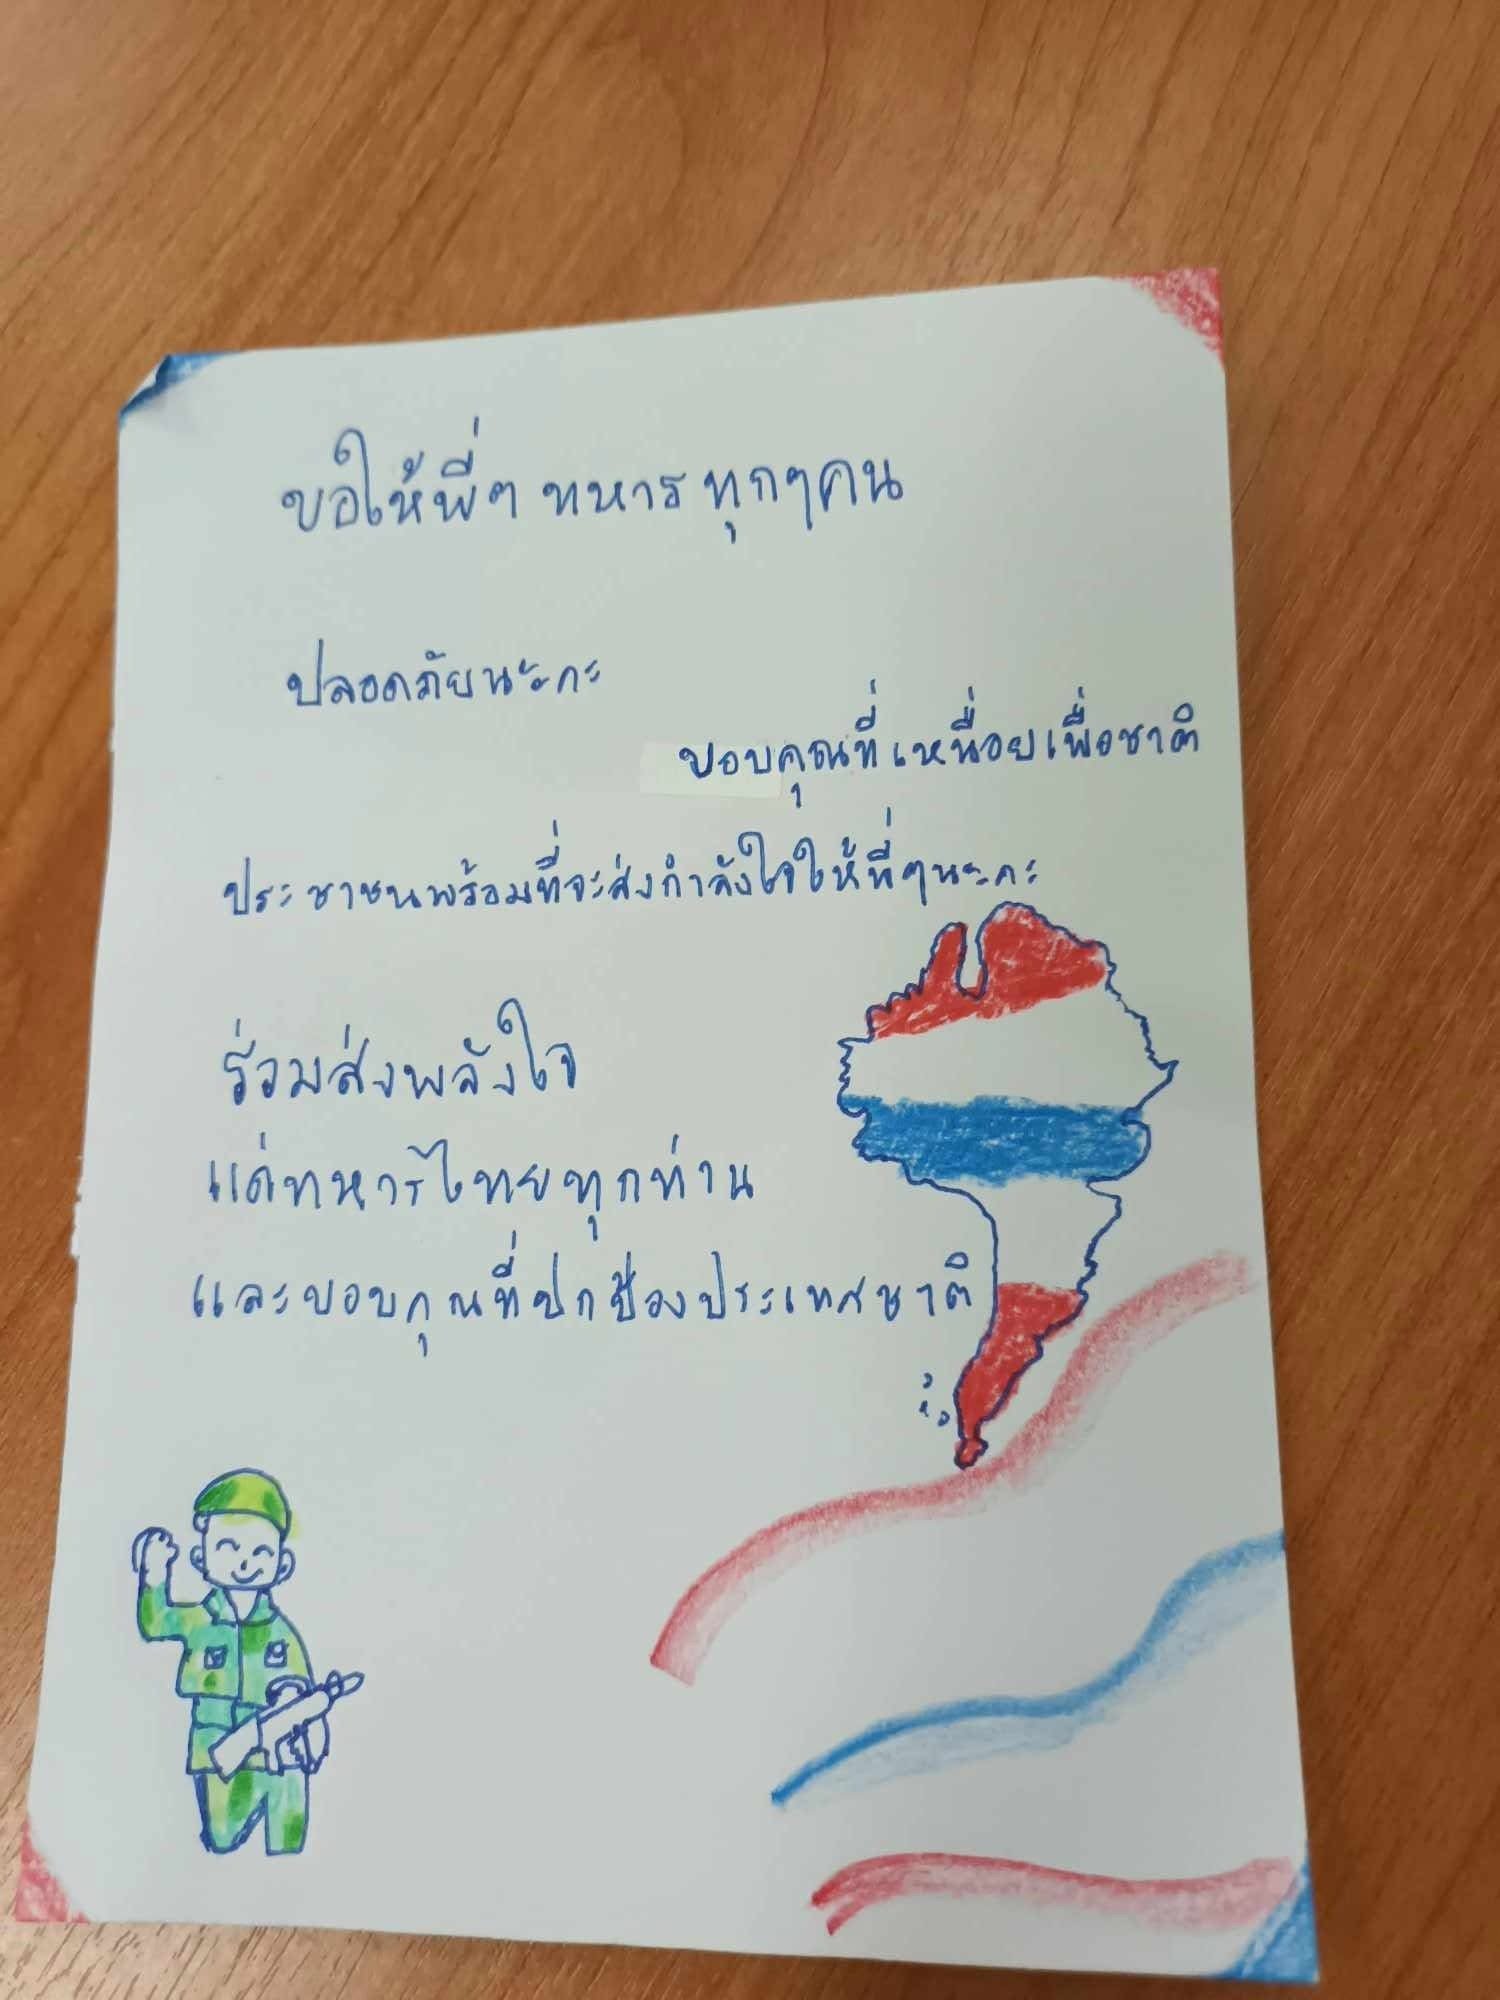 ขอให้พี่ๆ ทหาร ทุกๆคน
ปลอดภัยนะคะ
ขอบคุณที่เหนื่อยเพื่อชาติ
ประชาชนพร้อมที่จะส่งกำลังใจให้พี่ๆนะคะ
ร่วมส่งพลังใจ
แด่ทหารไทยทุกท่าน
และขอบคุณที่ปกป้องประเทศชาติ